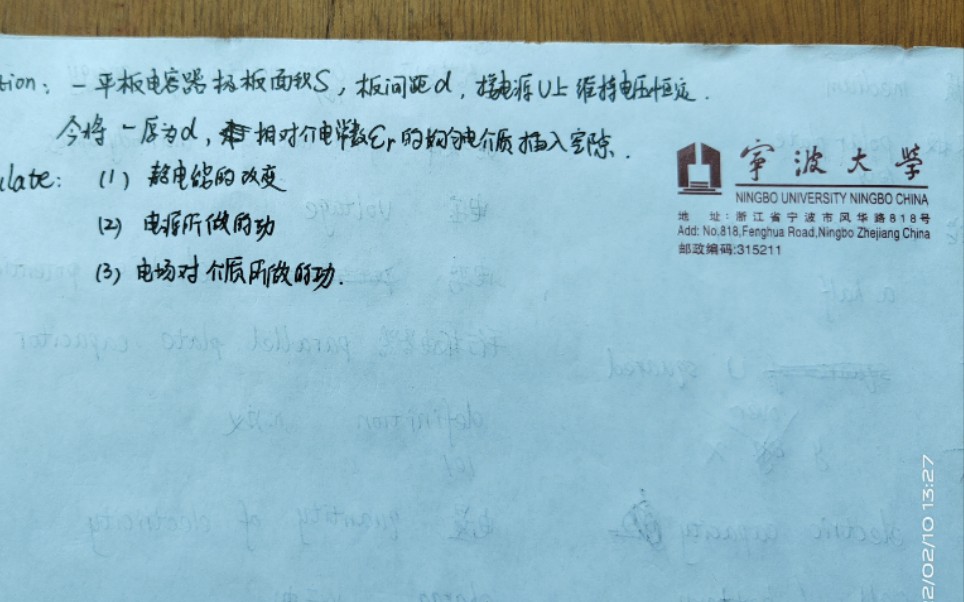 tion: 一平板电容器极板面积S，板间距d，接电源U上维持电压恒定.
今将一厚为d，相对介电常数εr的均匀电介质插入空隙.
late: (1) 静电能的改变
(2) 电源所做的功
(3) 电场对介质所做的功.
宁波大学
NINGBO UNIVERSITY NINGBO CHINA
地 址:浙江省宁波市风华路818号
Add: No,818,Fenghua Road,Ningbo Zhejiang China
邮政编码:315211
电压 voltage
a half
parallel plate capacitor
U squared
definition 定义
电量 quantity of electricity
electric capacity
2/02/10 13:27